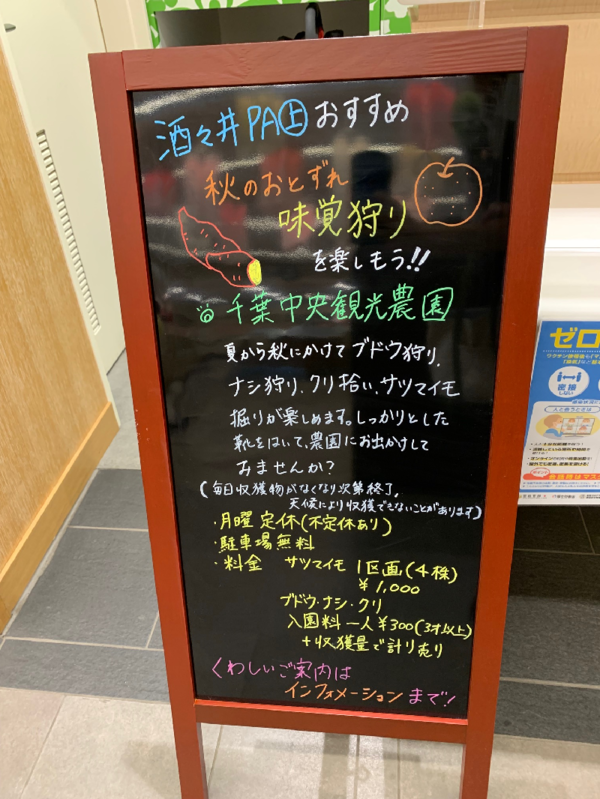 酒々井PA㊤おすすめ
秋のおとずれ
味覚狩り
を楽しもう!!
千葉中央観光農園
夏から秋にかけてブドウ狩り、
ナシ狩り、クリ拾い、サツマイモ
掘りが楽しめます。しっかりとした
靴をはいて、農園にお出かけして
みませんか?
(毎日収獲物がなくなり次第終了。
天候により収獲できないことがあります)
・月曜定休(不定休あり)
・駐車場無料
・料金 サツマイモ 1区画(4株)
¥1,000
ブドウ・ナシ・クリ
入園料 一人¥300(3才以上)
+収獲量で計り売り
くわしいご案内は
インフォメーションまで!
ゼロ
密接
しない